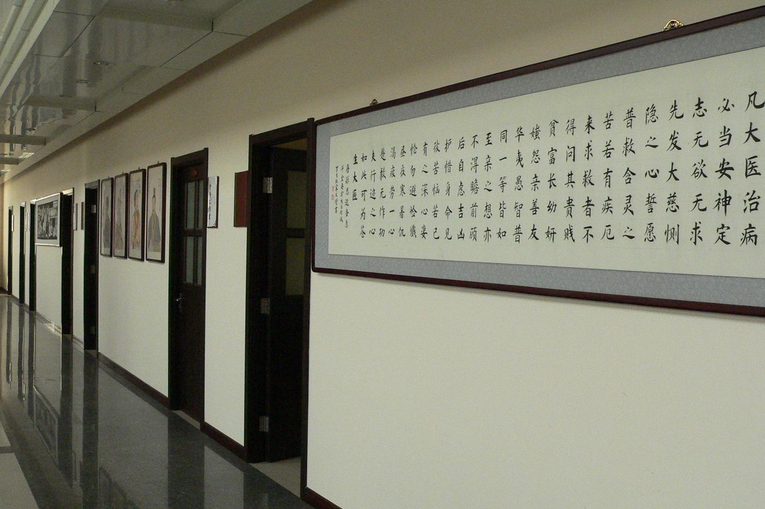 凡大医治病
必当安神定
志无欲无求
先发大慈恻
隐之心誓愿
普救含灵之
苦若有疾厄
来求救者不
得问其貴贱
貧富长幼妍
媸怨亲善友
华夷愚智普
同一等皆如
至亲之想亦
不得瞻前顾
后自虑吉凶
护惜身命見
彼苦恼若己
有之深心凄
怆勿避崄巇
昼夜寒暑饥
渴疲劳一心
赴救无作功
夫行迹之心
如此可为苍
生大医